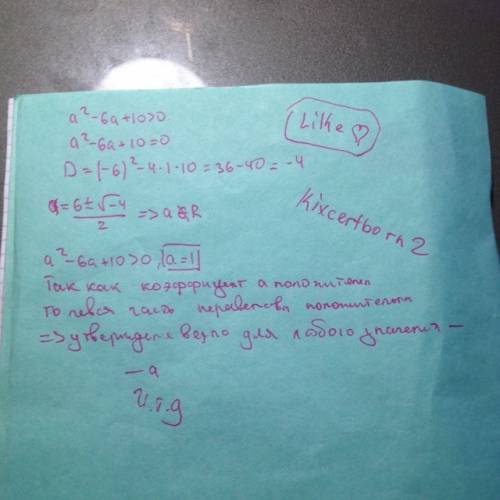 a²-6a+10>0
a²-6a+10=0
D=(-6)²-4·1·10=36-40=-4
a=6±√-4/2 => a∉R
Like ♡
Kixcertborn2
a²-6a+10>0, a=1
Так как коэффициент а положителен
то левая часть неравенства положительна
=> утверждение верно для любого значения —
— a
ч.т.д